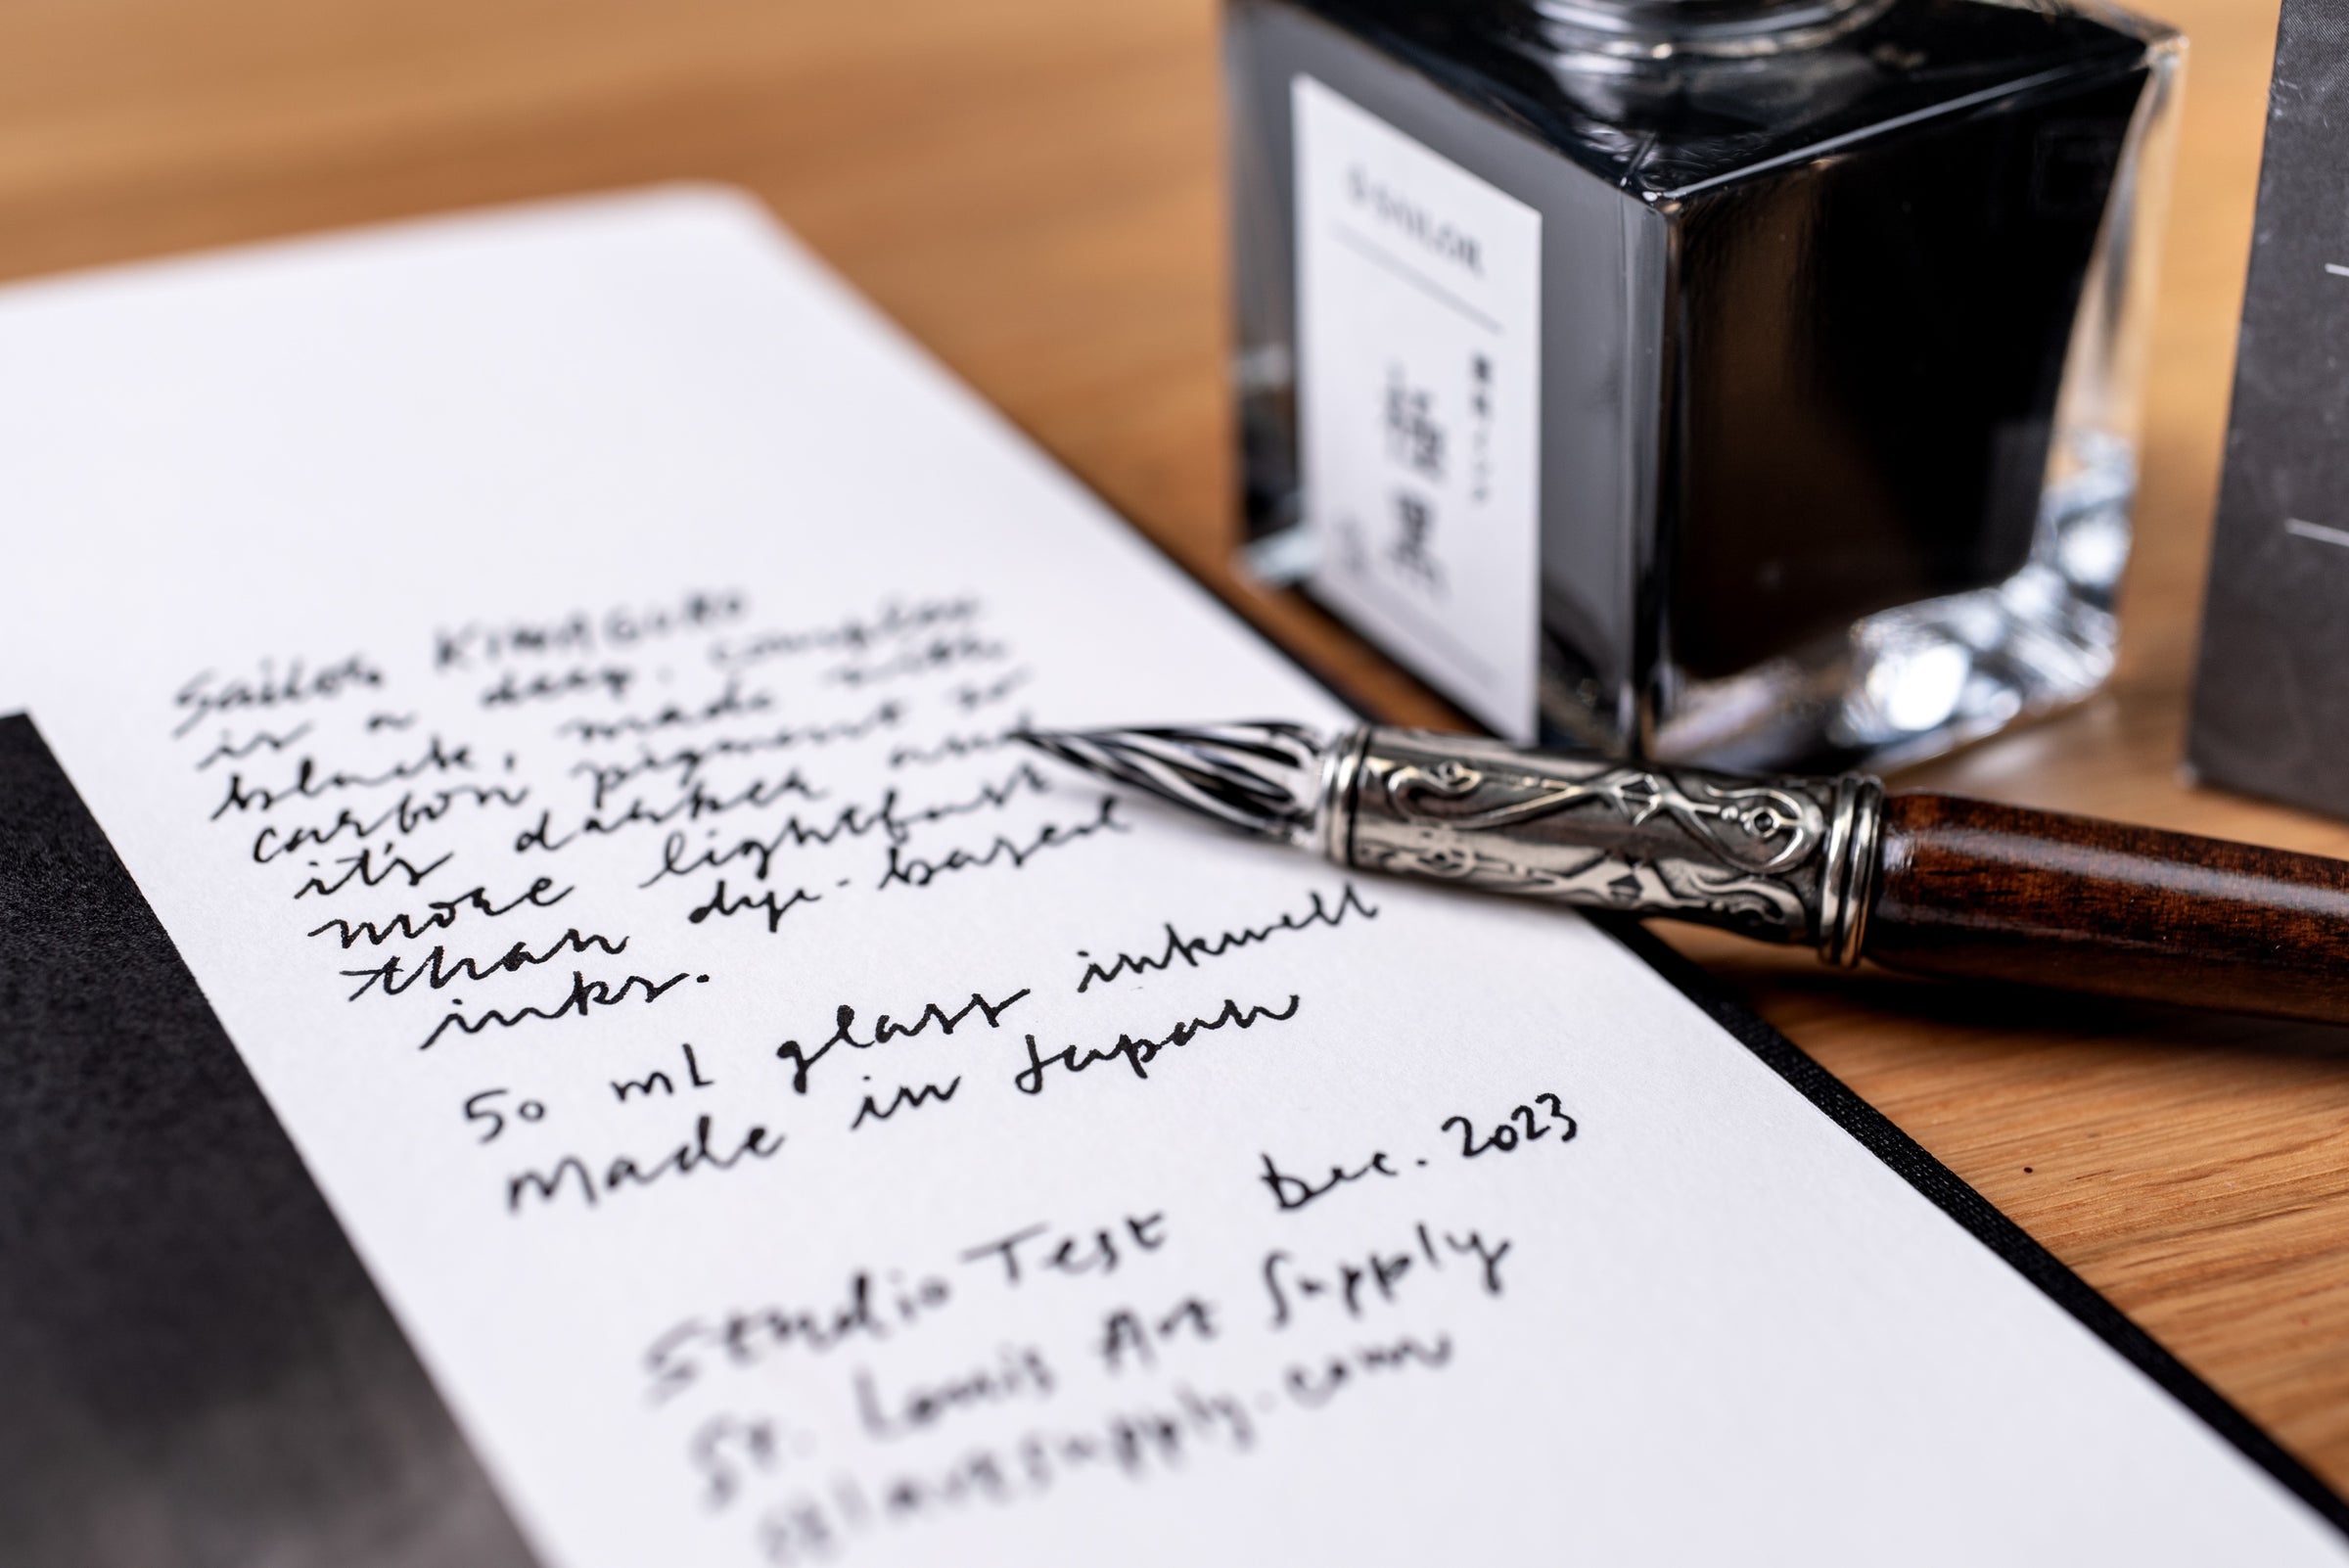 Sailor KIWAGURO
is a deep, complex
black, made with
carbon pigment so
it's darker and
more lightfast
than dye-based
inks.
50 ml glass inkwell
Made in Japan
Dec. 2023
Studio Test
St. Louis Art Supply
SAILOR
極黒